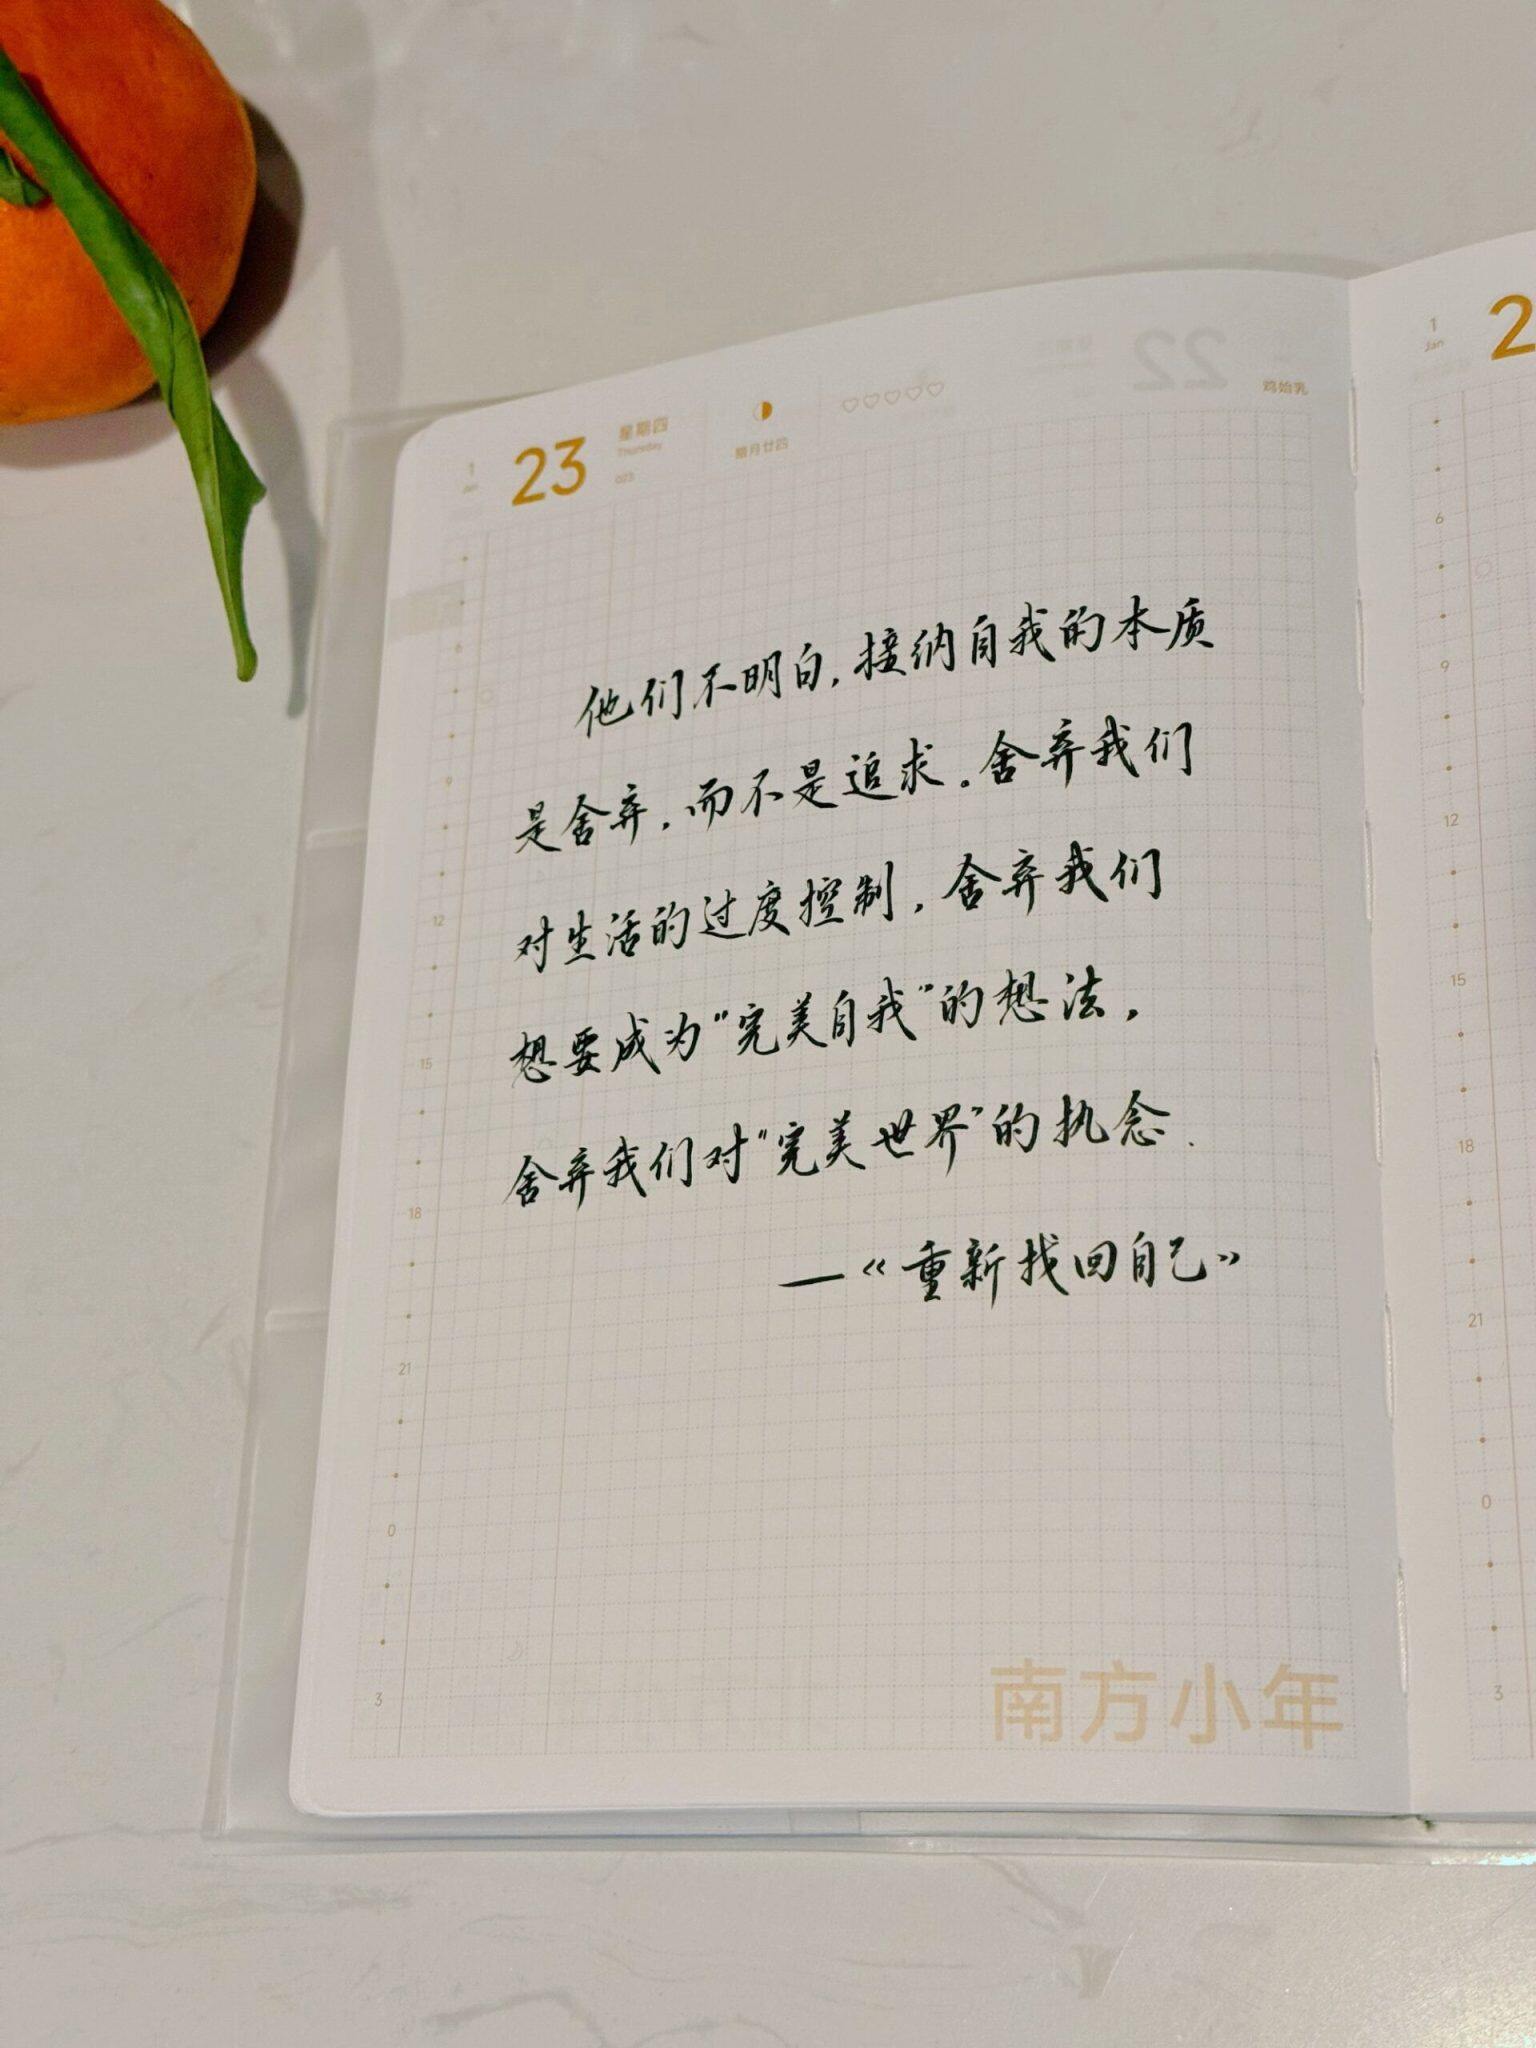 1
Jan
23
星期四
Thursday
023
腊月廿四
22
鸡始乳
1
Jan
2
他们不明白,接纳自我的本质
是舍弃,而不是追求。舍弃我们
对生活的过度控制,舍弃我们
想要成为"完美自我"的想法,
舍弃我们对"完美世界"的执念.
—《重新找回自己》
6
9
12
15
18
21
0
3
南方小年
6
9
12
15
18
21
0
3